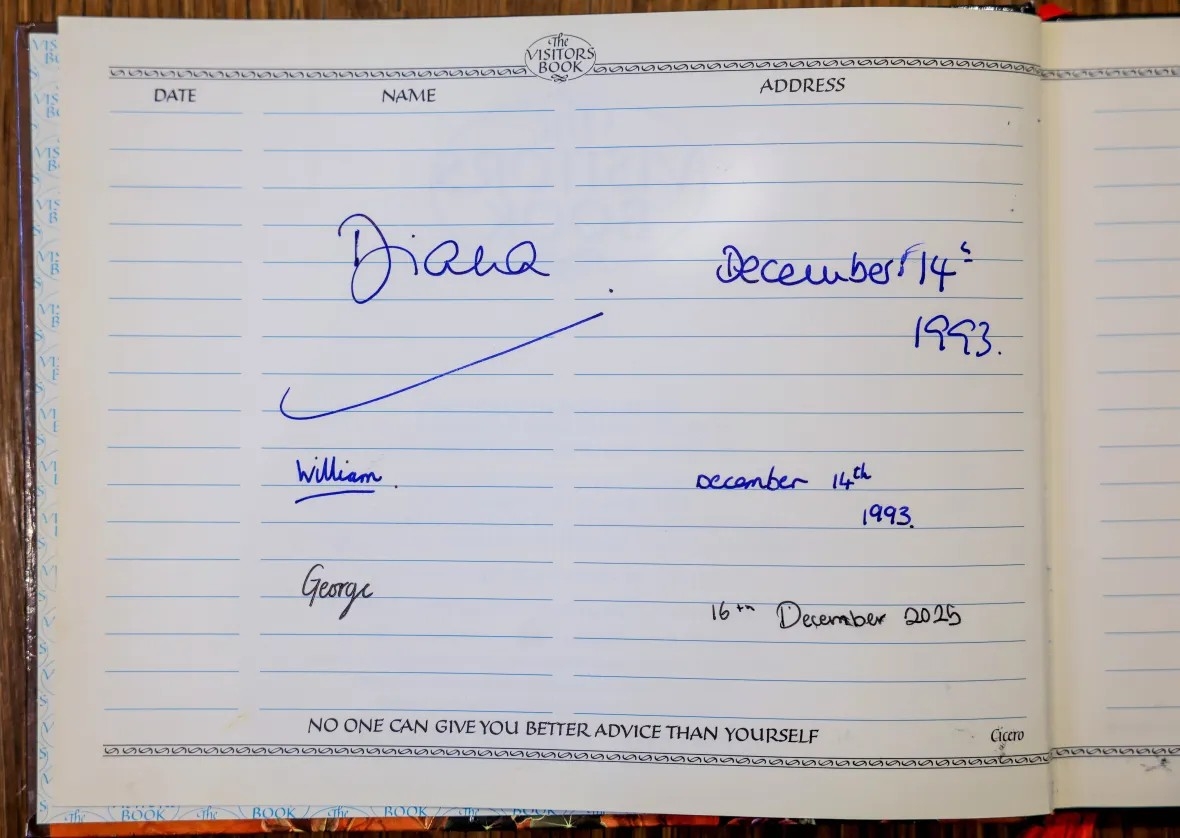 The
VISITORS
BOOK
DATE NAME ADDRESS
Diana December 14th
1993.
William. December 14th
1993.
George
16th December 2025
NO ONE CAN GIVE YOU BETTER ADVICE THAN YOURSELF Cicero
The BOOK The BOOK The BOOK